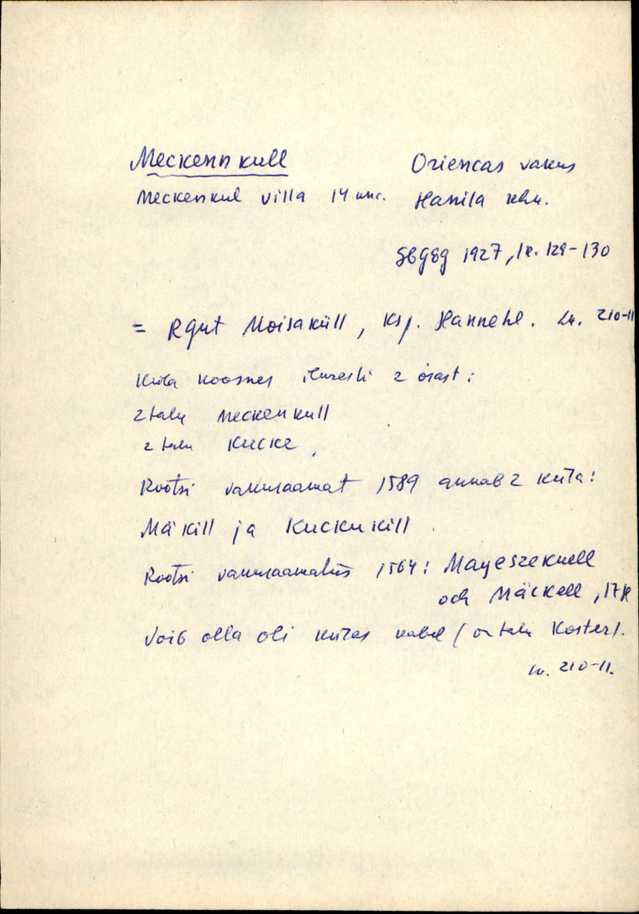 Meckennkull Oriencas vakus
Meckenkul villa 14 unc. Hanila khn.
SbGEG 1927, lk. 129-130
= Rgut Moisaküll, Ksp. Hannehl. Lk. 210-11
Küla koosnes ilmesti 2 osast:
2 talu Meckenkull
2 talu Kucke,
Rootsi vakuraamat 1589 annab 2 küla:
Mäkill ja Kuckukill.
Rootsi vakuraamatus 1564: Mayeszekuell
och Mäckell, 17 k
Võib olla oli külas kabel (on talu Koster).
Lk. 210-11.